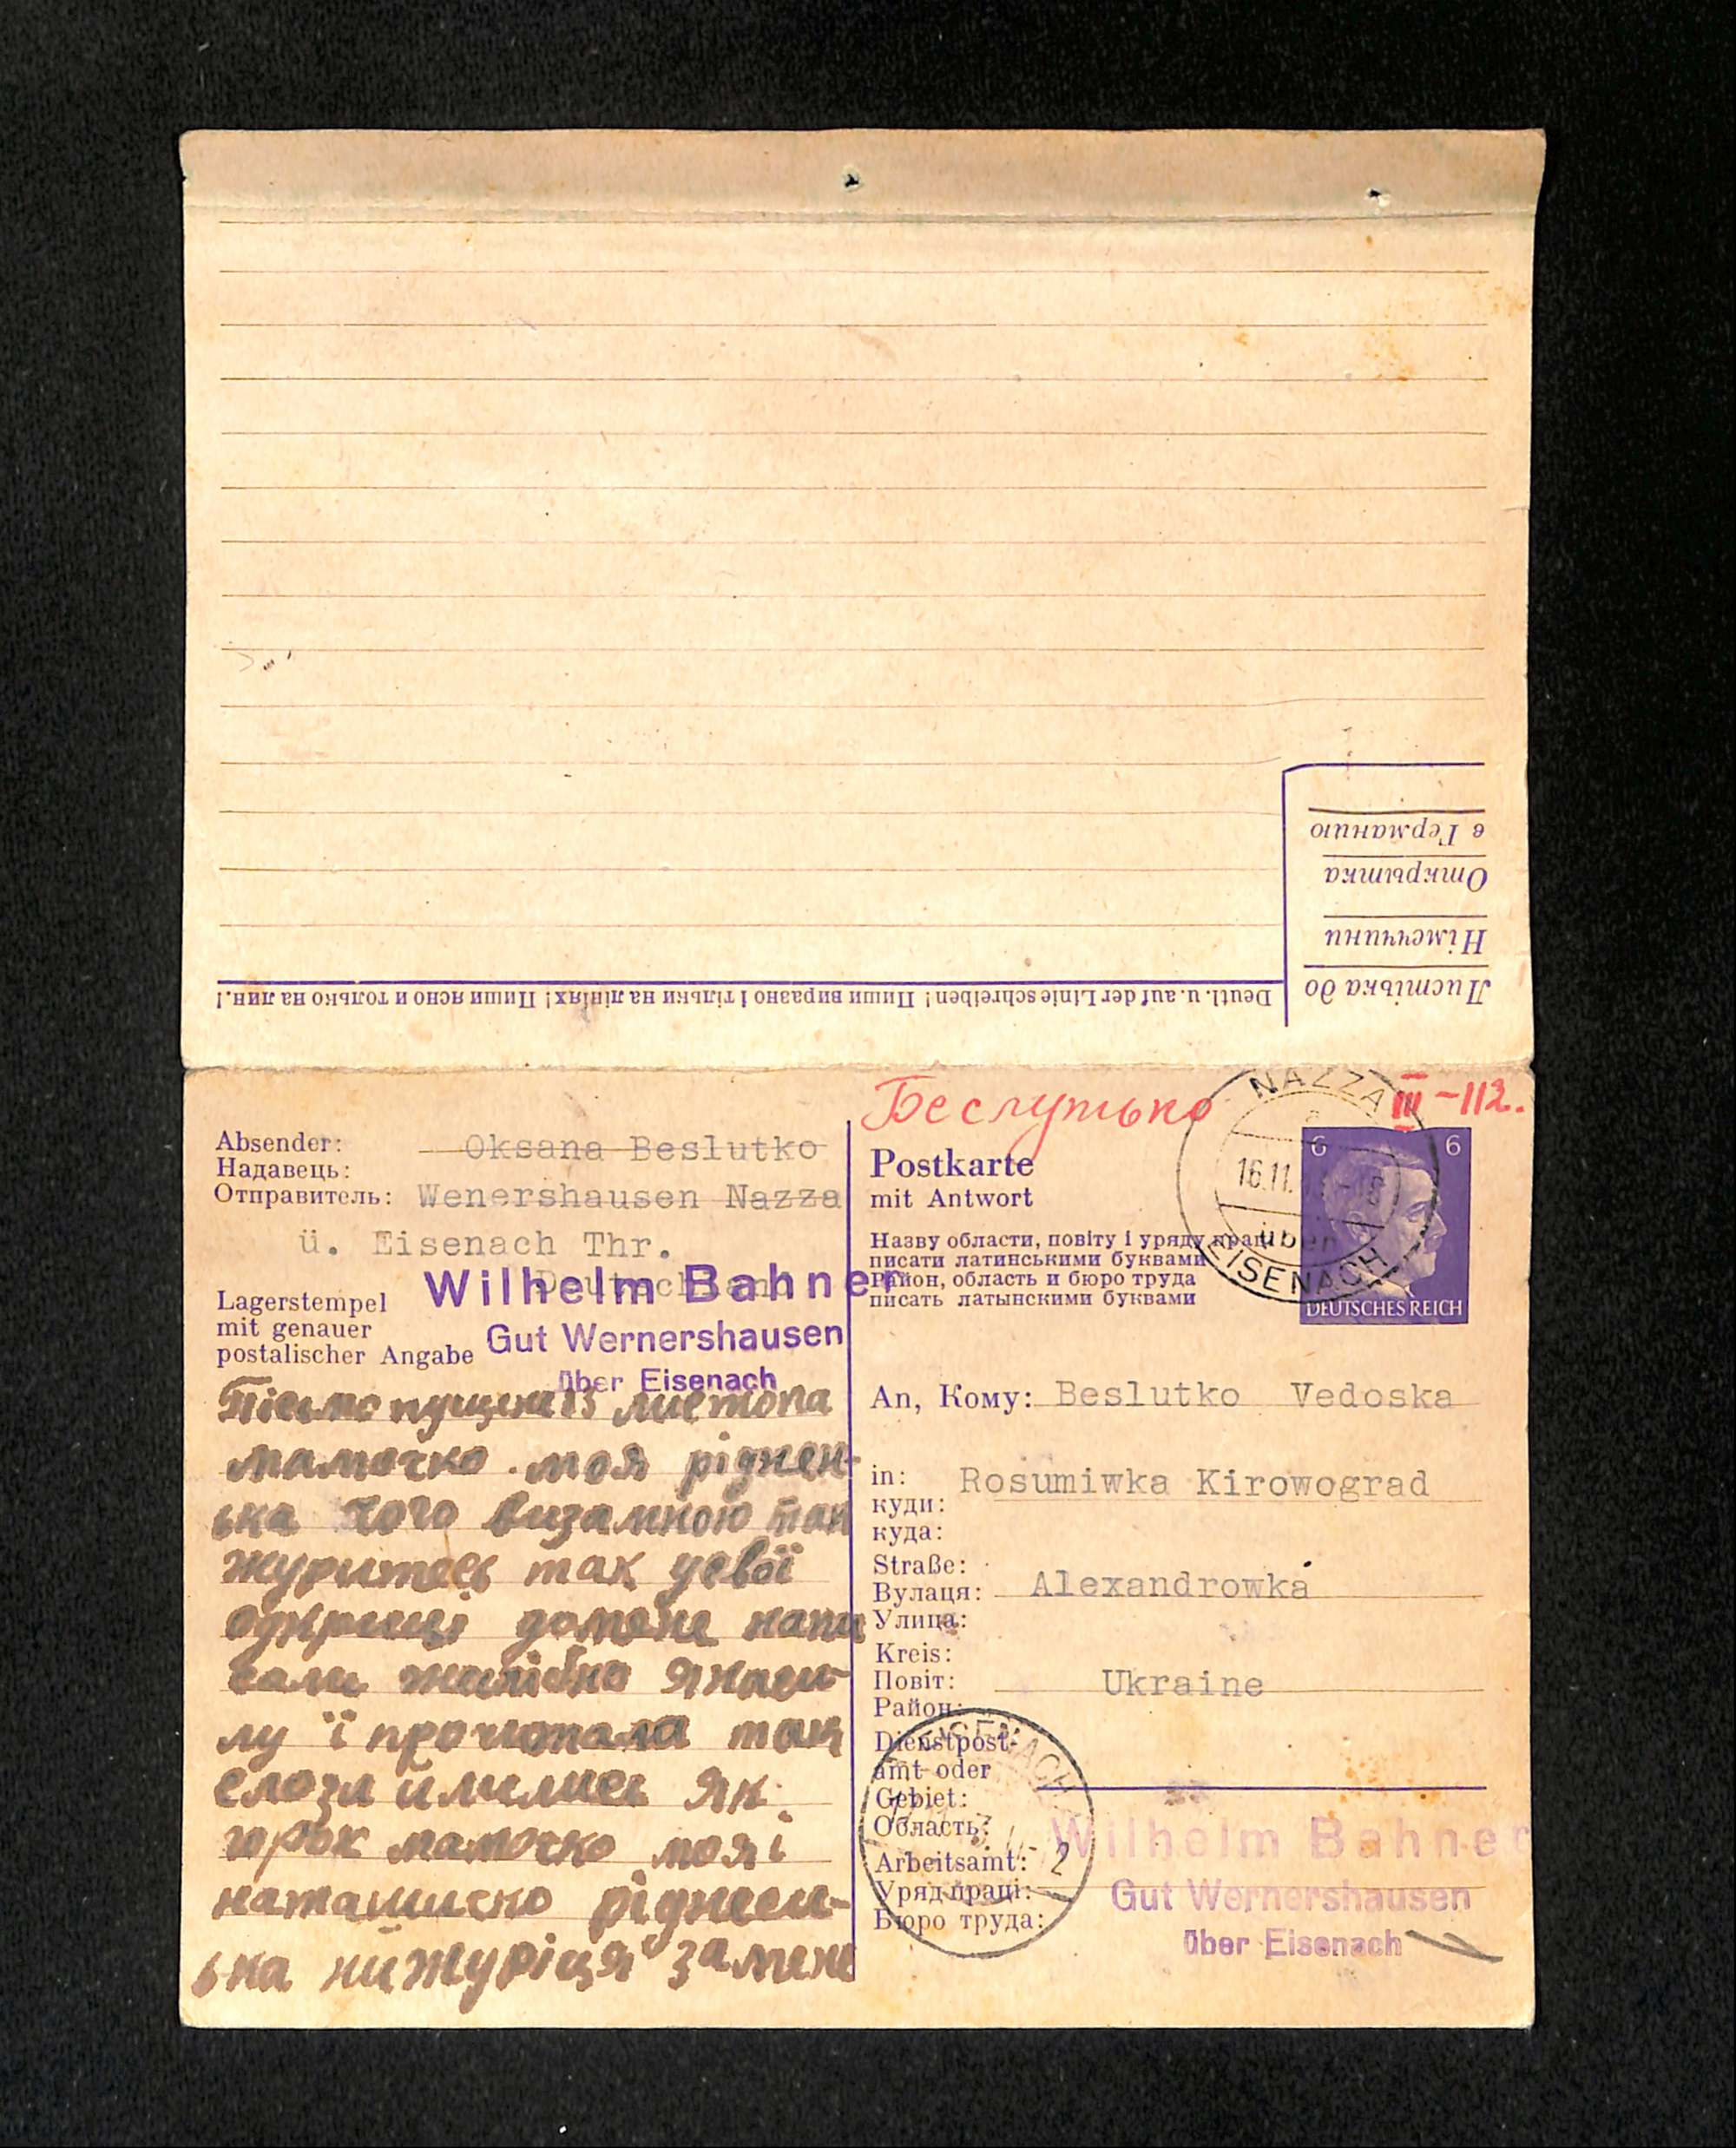 Листівка до
Німеччини
Открытка
в Германию
Deutl. u. auf der Linie schreiben! Пиши виразно і тільки на лініях! Пиши ясно и только на лин.!
Беслутько
III-112.
Absender: Oksana Beslutko
Надавець:
Отправитель: Wenershausen Nazza
ü. Eisenach Thr.
Deutschland
Lagerstempel
mit genauer
postalischer Angabe
Wilhelm Bahner
Gut Wernershausen
über Eisenach
Пісьмо пущене 13 листопа
мамочко моя ріднен-
ька чого визамною так
журитесь так усвої
одкриці домене напи
сали жалібно як
лу її прочитала так
слози й лились як
мамочко моя і
наташичко ріднень-
ька нижуріця замене
Postkarte
mit Antwort
Назву области, повіту і уряду праці
писати латинськими буквами
Район, область и бюро труда
писать латынскими буквами
NAZZA
a
16.11.
über
EISENACH
6 6
DEUTSCHES REICH
An, Кому: Beslutko Vedoska
in: Rosumiwka Kirowograd
куди:
куда:
Straße:
Вулаця: Alexandrowka
Улица:
Kreis:
Повіт: Ukraine
Район:
Dienstpost-
amt oder
Gebiet:
Область:
Arbeitsamt:
Уряд праці:
Бюро труда:
EISENACH
2
Wilhelm Bahner
Gut Wernershausen
über Eisenach